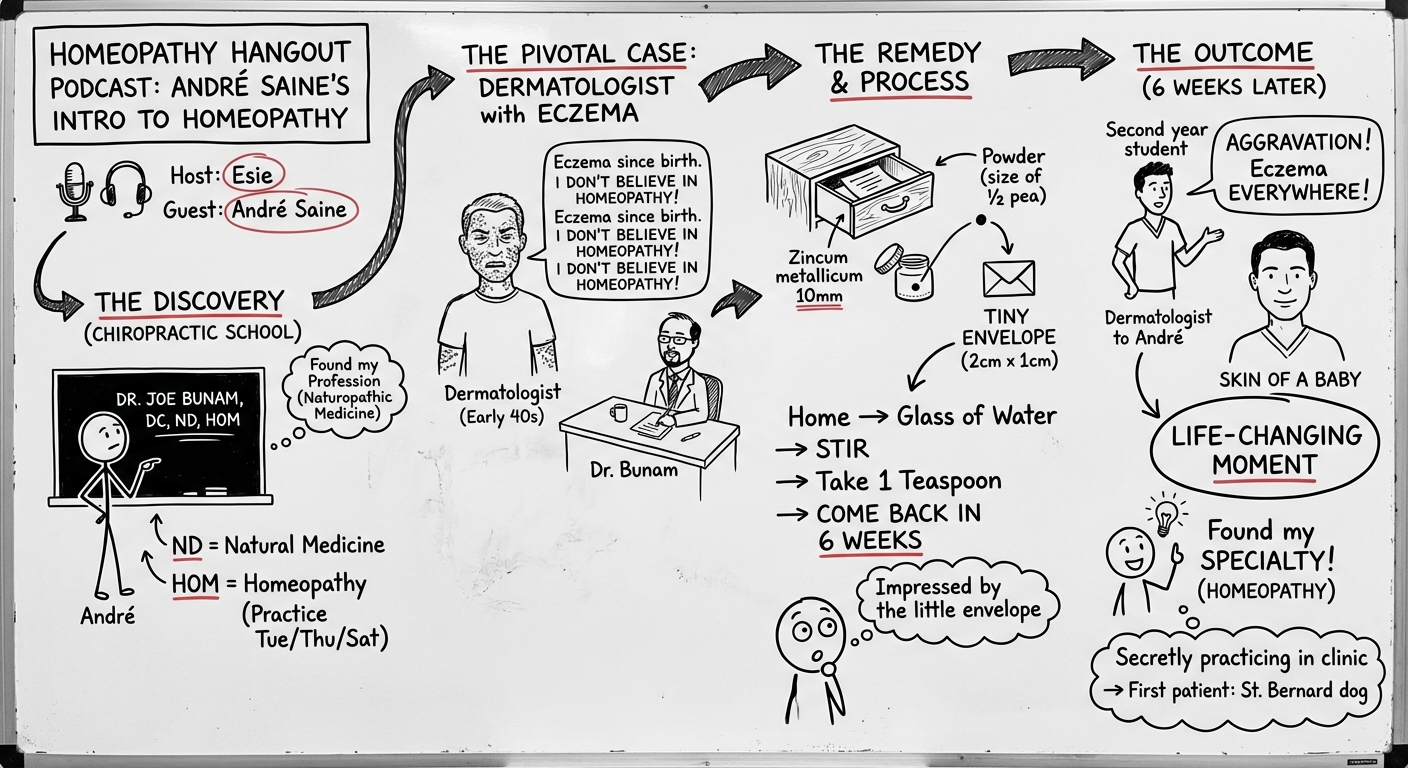 HOMEOPATHY HANGOUT
PODCAST: ANDRÉ SAINE'S
INTRO TO HOMEOPATHY
Host: Esie
Guest: André Saine
THE DISCOVERY
(CHIROPRACTIC SCHOOL)
DR. JOE BUNAM,
DC, ND, HOM
Found my
Profession
(Naturopathic
Medicine)
André
ND = Natural Medicine
HOM = Homeopathy
(Practice
Tue/Thu/Sat)
THE PIVOTAL CASE:
DERMATOLOGIST
with ECZEMA
Eczema since birth.
I DON'T BELIEVE IN
HOMEOPATHY!
Eczema since birth.
I DON'T BELIEVE IN
HOMEOPATHY!
I DON'T BELIEVE IN
HOMEOPATHY!
Dermatologist
(Early 40s)
Dr. Bunam
THE REMEDY
& PROCESS
Powder
(size of
½ pea)
Zincum
metallicum
10mm
TINY
ENVELOPE
(2cm x 1cm)
Home → Glass of Water
→ STIR
→ Take 1 Teaspoon
→ COME BACK IN
6 WEEKS
Impressed by
the little envelope
THE OUTCOME
(6 WEEKS LATER)
Second year
student
AGGRAVATION!
Eczema
EVERYWHERE!
Dermatologist
to André
SKIN OF A BABY
LIFE-CHANGING
MOMENT
Found my
SPECIALTY!
(HOMEOPATHY)
Secretly practicing in clinic
→ First patient: St. Bernard dog